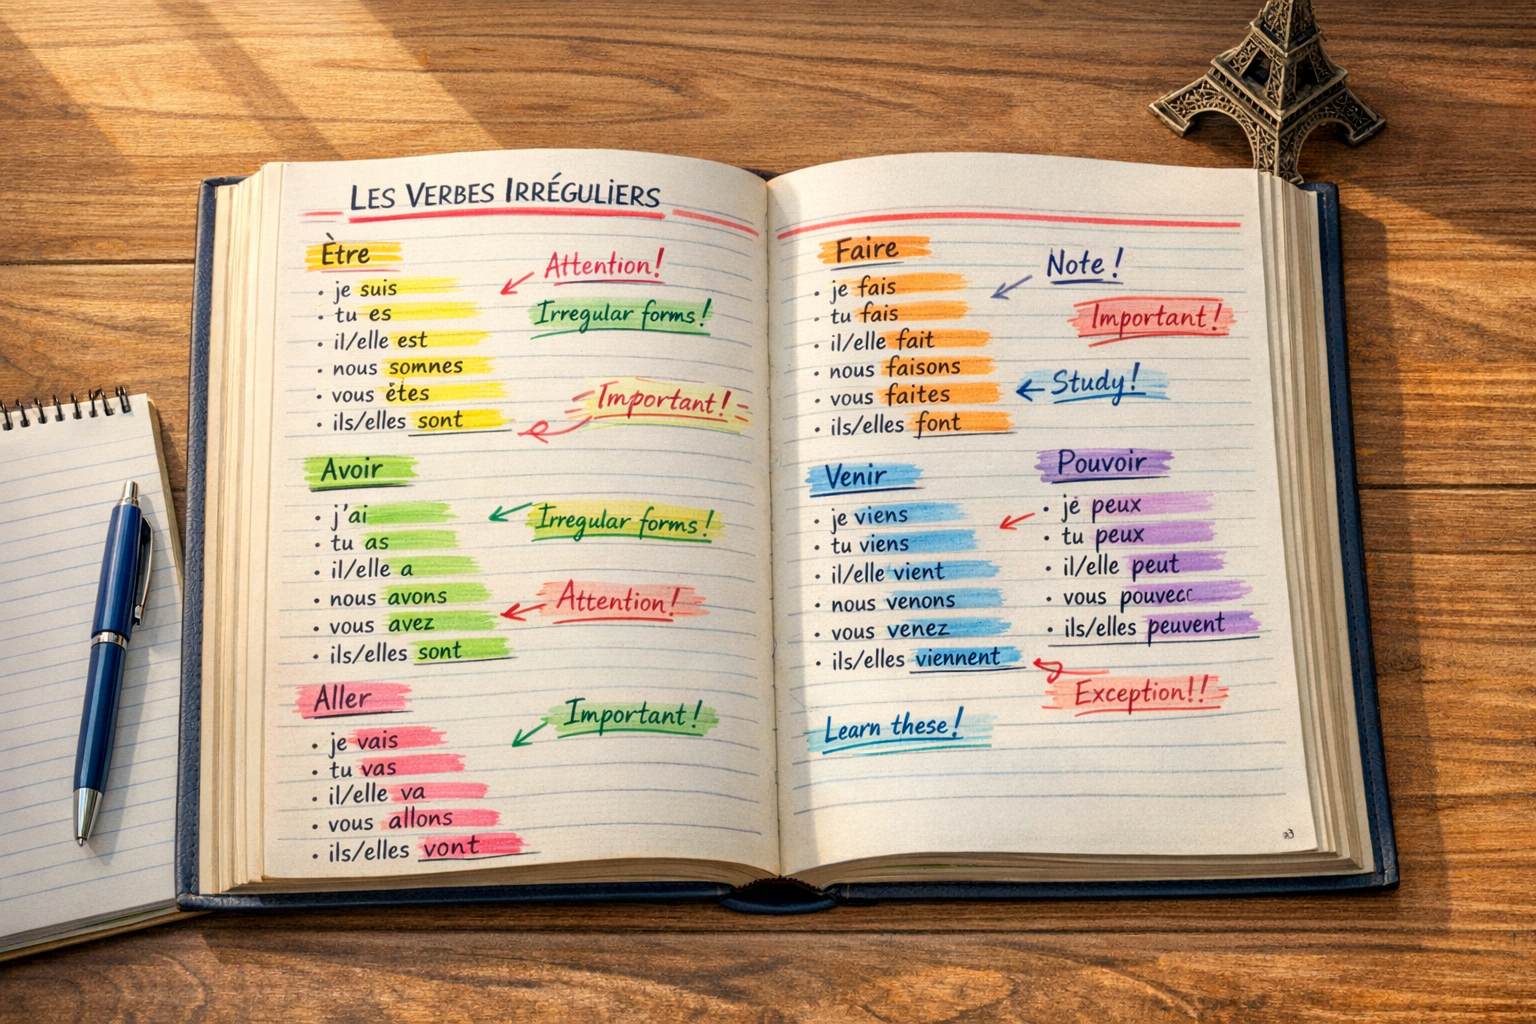 LES VERBES IRRÉGULIERS
Ètre
• je suis
• tu es
• il/elle est
• nous somnes
• vous êtes
• ils/elles sont
Attention!
Irregular forms!
Important!
Avoir
• j'ai
• tu as
• il/elle a
• nous avons
• vous avez
• ils/elles sont
Irregular forms!
Attention!
Aller
• je vais
• tu vas
• il/elle va
• vous allons
• ils/elles vont
Important!
Faire
• je fais
• tu fais
• il/elle fait
• nous faisons
• vous faites
• ils/elles font
Note!
Important!
Study!
Venir
• je viens
• tu viens
• il/elle vient
• nous venons
• vous venez
• ils/elles viennent
Pouvoir
• jė peux
• tu peux
• il/elle peut
• vous
• ils/elles peuvent
Exception!!
Learn these!